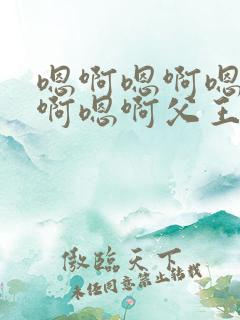 嗯啊嗯啊嗯
啊嗯啊父王
傲临天下
未经同意禁止转载